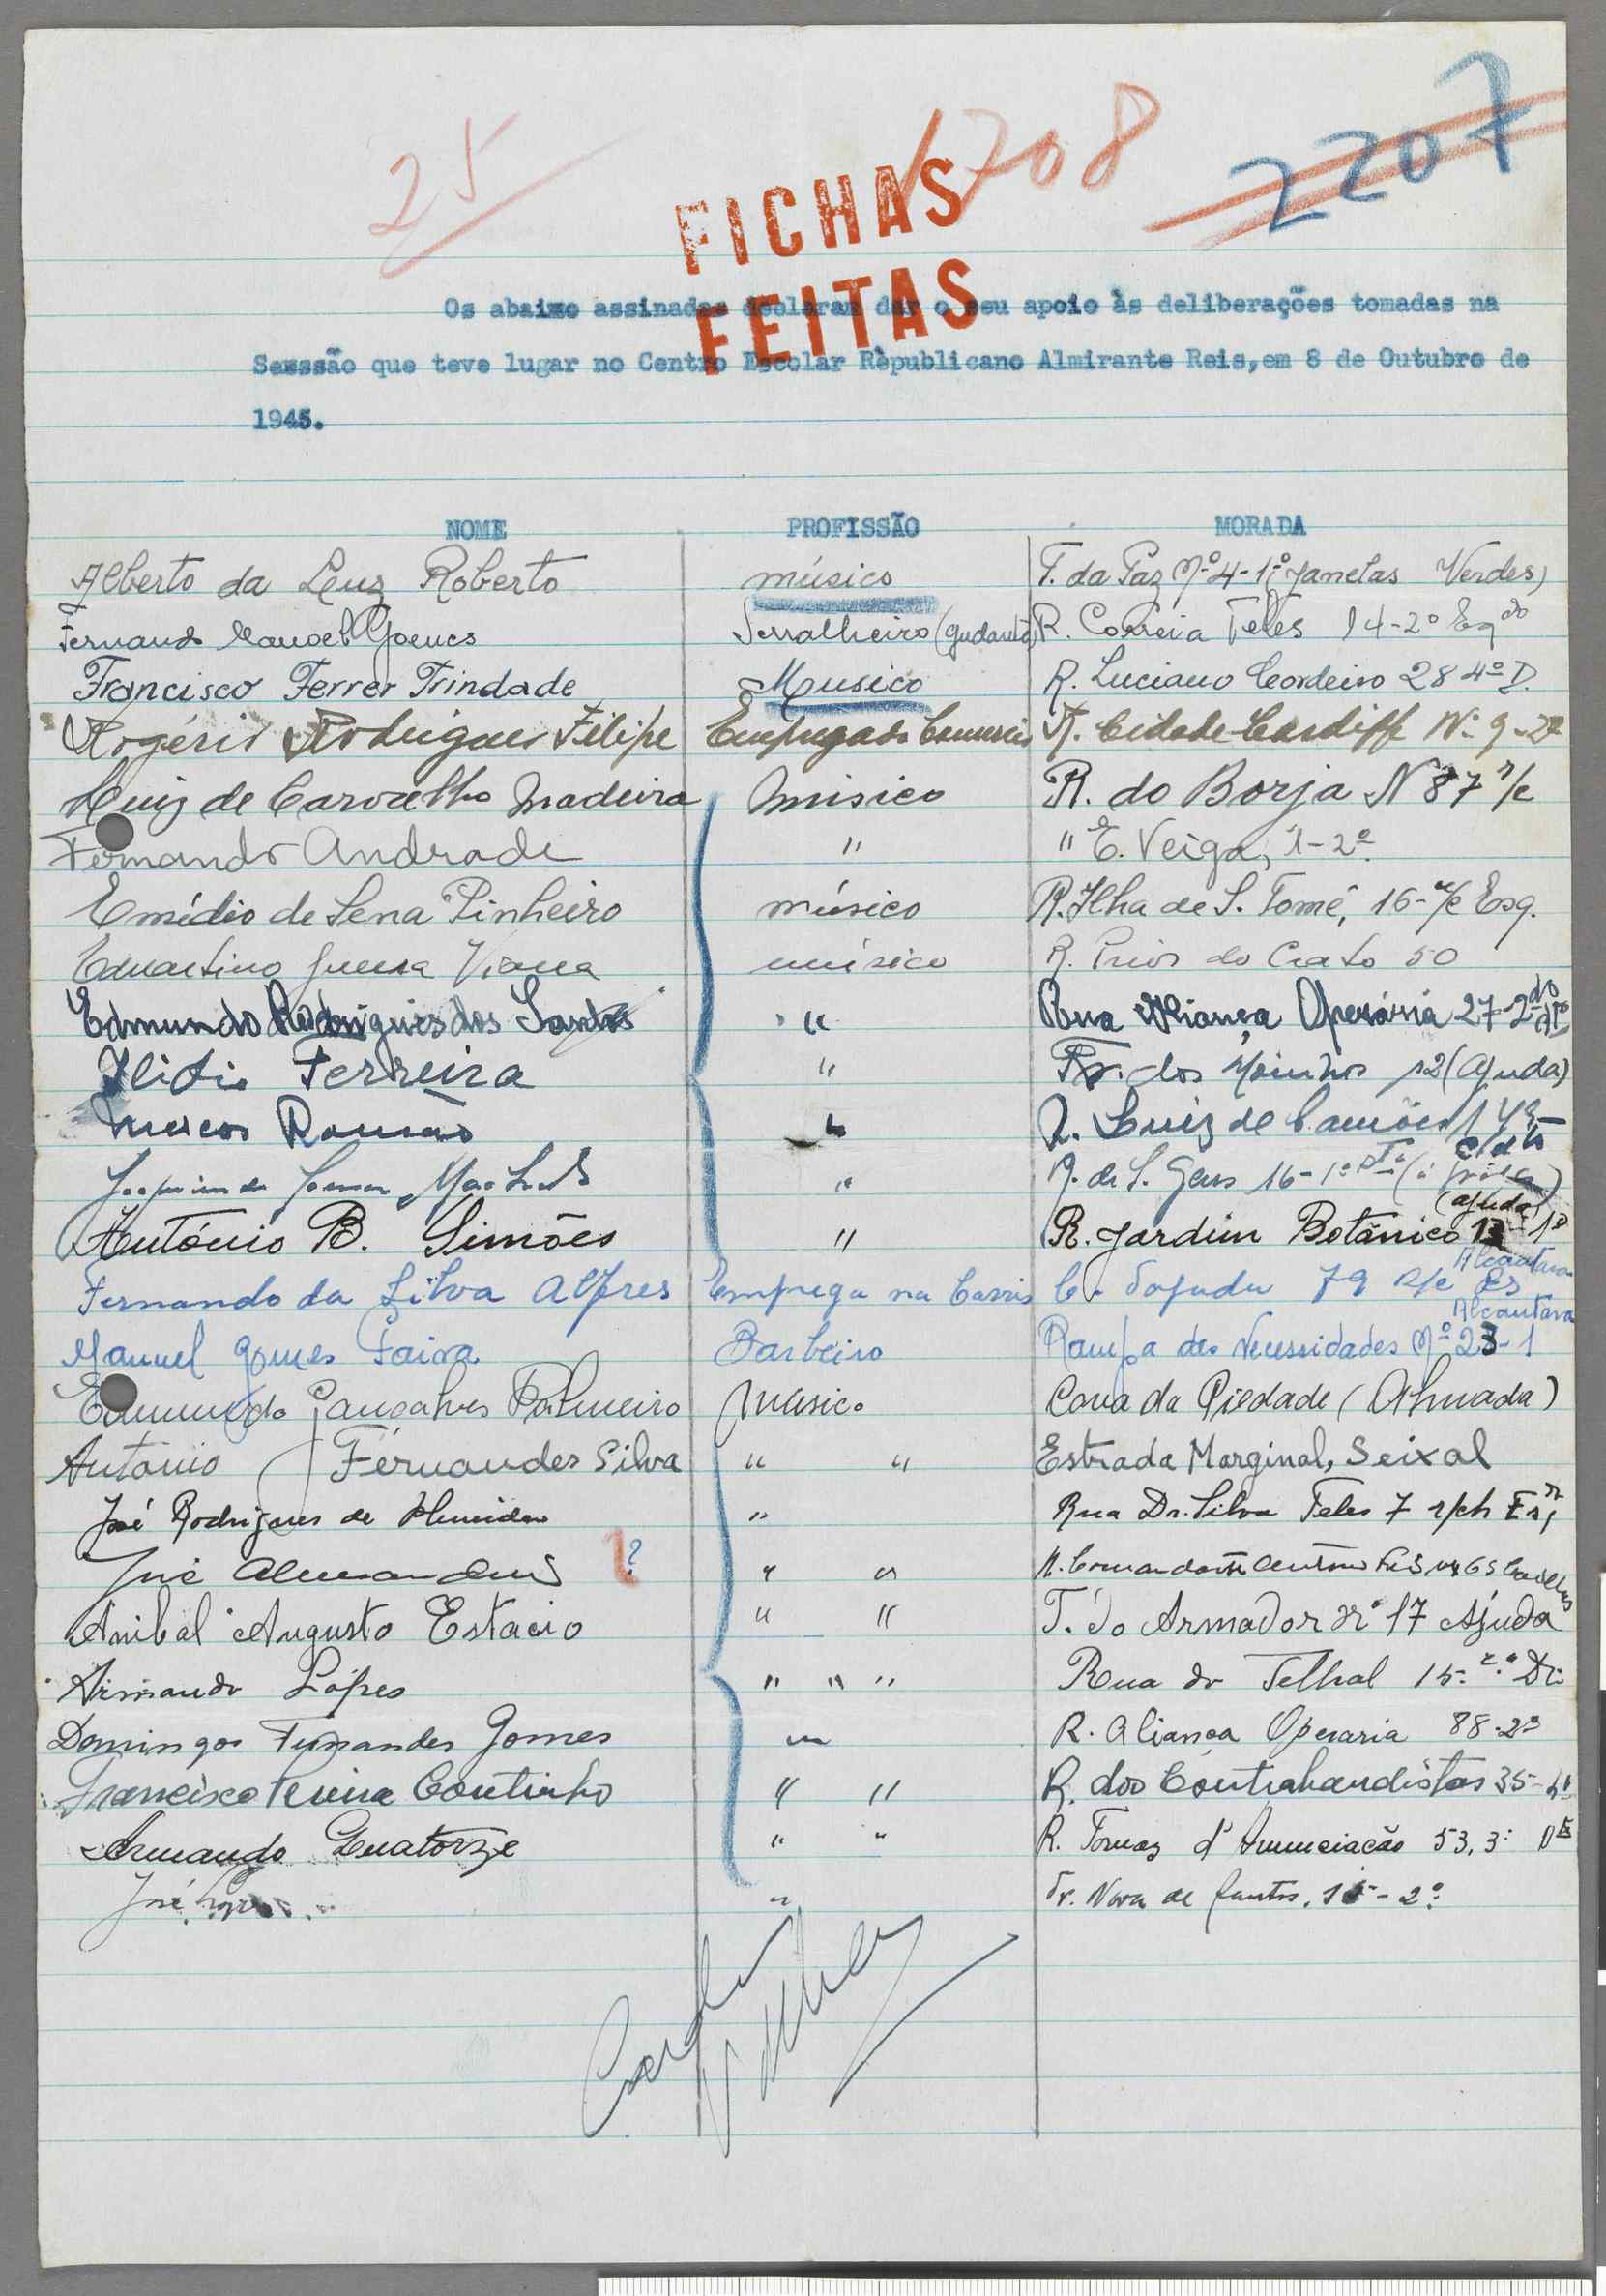 25
1708
2207
FICHAS
FEITAS
Os abaixo assinados declaram dar o seu apoio às deliberações tomadas na
Sesssão que teve lugar no Centro Escolar Rèpublicano Almirante Reis, em 8 de Outubro de
1945.
NOME PROFISSÃO MORADA
Alberto da Luz Roberto músico T. da Paz Nº 4-1º Janelas Verdes)
Fernando Manoel Gomes Serralheiro R. Correia Teles 14-2º Esqdo
Francisco Ferrer Trindade Musico R. Luciano Cordeiro 28 4º D.
Rogério Rodrigues Filipe Empregado Comercio R. Cidade Cardiff Nº 9-2º
Luiz de Carvalho Madeira músico R. do Borja N 87 r/c
Fernando Andrade " " E. Veiga, 1-2º
Emídio de Sena Pinheiro músico R. Ilha de S. Tomé, 16-r/c Esq.
Eduartino Guerra Viana músico R. Prior do Crato 50
Edmundo Rodrigues dos Santos " Rua Aliança Operária 27-2º
Ilidio Ferreira " dos Moinhos 12 (Ajuda)
Marcos Romão " R. Luiz de Camões 143
" R. de S. Gens 16-1º
António B. Simões " R. Jardim Botânico 13-1º (Ajuda)
Fernando da Silva Alpres Emprega na Carris C. Tapada 79 r/c Es Alcantara
Manuel Gomes Paiva Barbeiro Rampa das Necessidades Nº 23-1 Alcantara
Edmundo Gonçalves Palmeiro Musico Cova da Piedade (Almada)
António Fernandes Silva " " Estrada Marginal, Seixal
José Rodrigues de Almeida " Rua Dr. Silva Teles 7 r/ch Esq
José ? " "
Anibal Augusto Estacio " " T. do Armador nº 17 Ajuda
Armando Lópes " " " Rua do Telhal 15-2º Dt
Domingos Fernandes Gomes " R. Aliança Operaria 88-2º
Francisco Coutinho " " R. dos Contrabandistas 35
Armando Quatorze " " R. Tomaz d'Anunciacão 53, 3º Dt
José " Tr. Nova de Santos, 15-2º